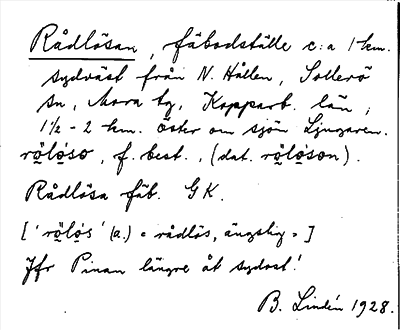 Rådlösan, fäbodställe c:a 1 km.
sydväst från N. Hållen, Sollerö
sn, Mora tg, Kopparb. län;
1½ - 2 km. öster om sjön Ljugaren.
rölòso, f. best., (dat. rölòson).
Rådlösa fäb. GK.
['rölòs' (a.) = rådlös, ängslig =]
Jfr Pinan längre åt sydost!
B. Lindén 1928.